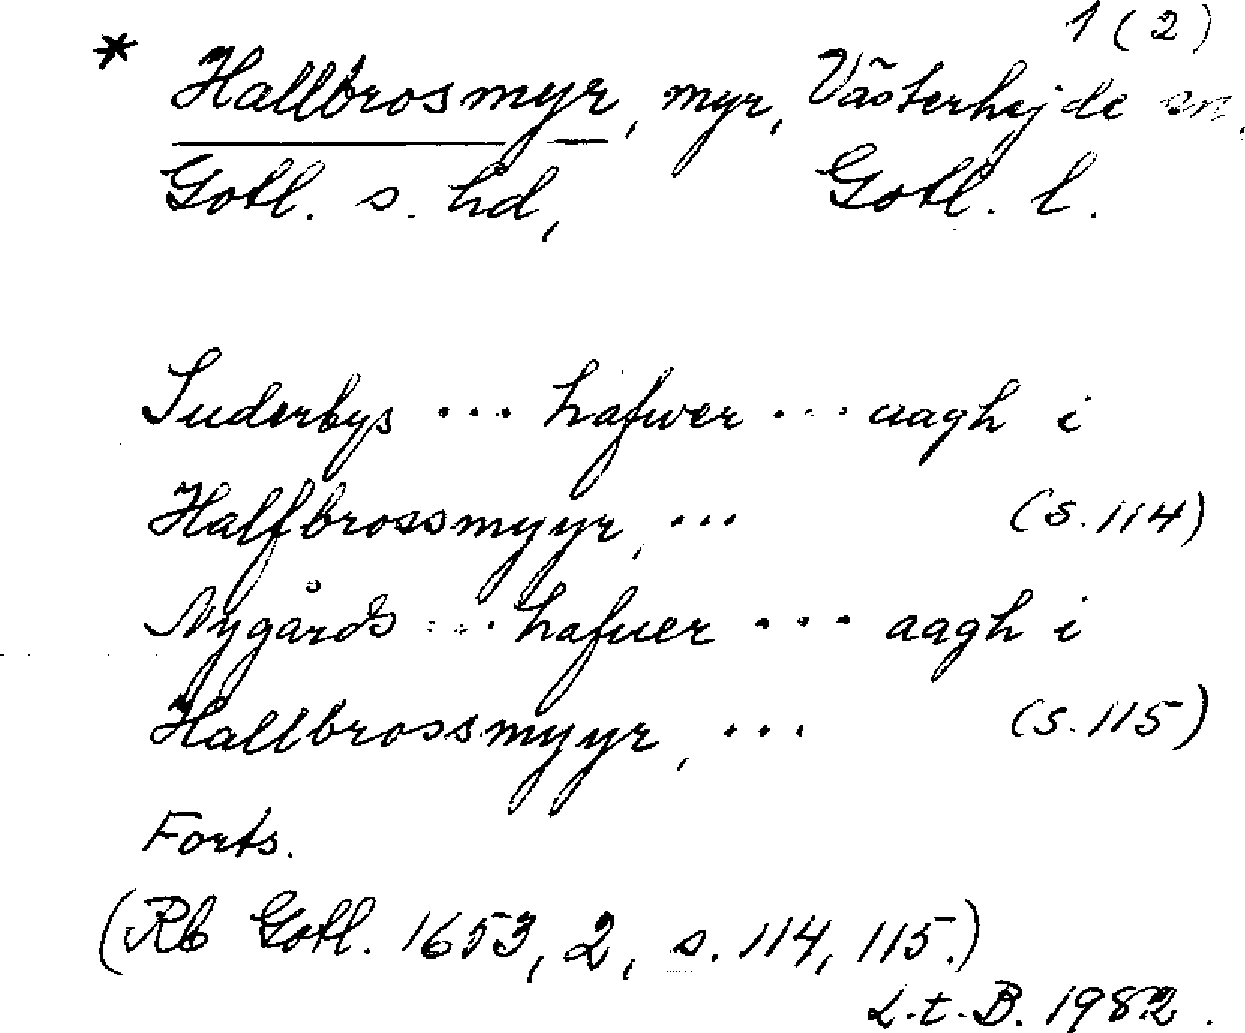 1 (2)
* Hallbrosmyr, myr, Västerhejde sn,
Gotl. s. hd, Gotl. l.
Suderbys ... hafwer ... aagh i
Halfbrossmyyr, ... (s. 114)
Nygårds ... hafuer ... aagh i
Hallbrossmyyr, ... (s. 115)
Forts.
(Rb Gotl. 1653, 2, s. 114, 115.)
L.t.B. 1982.